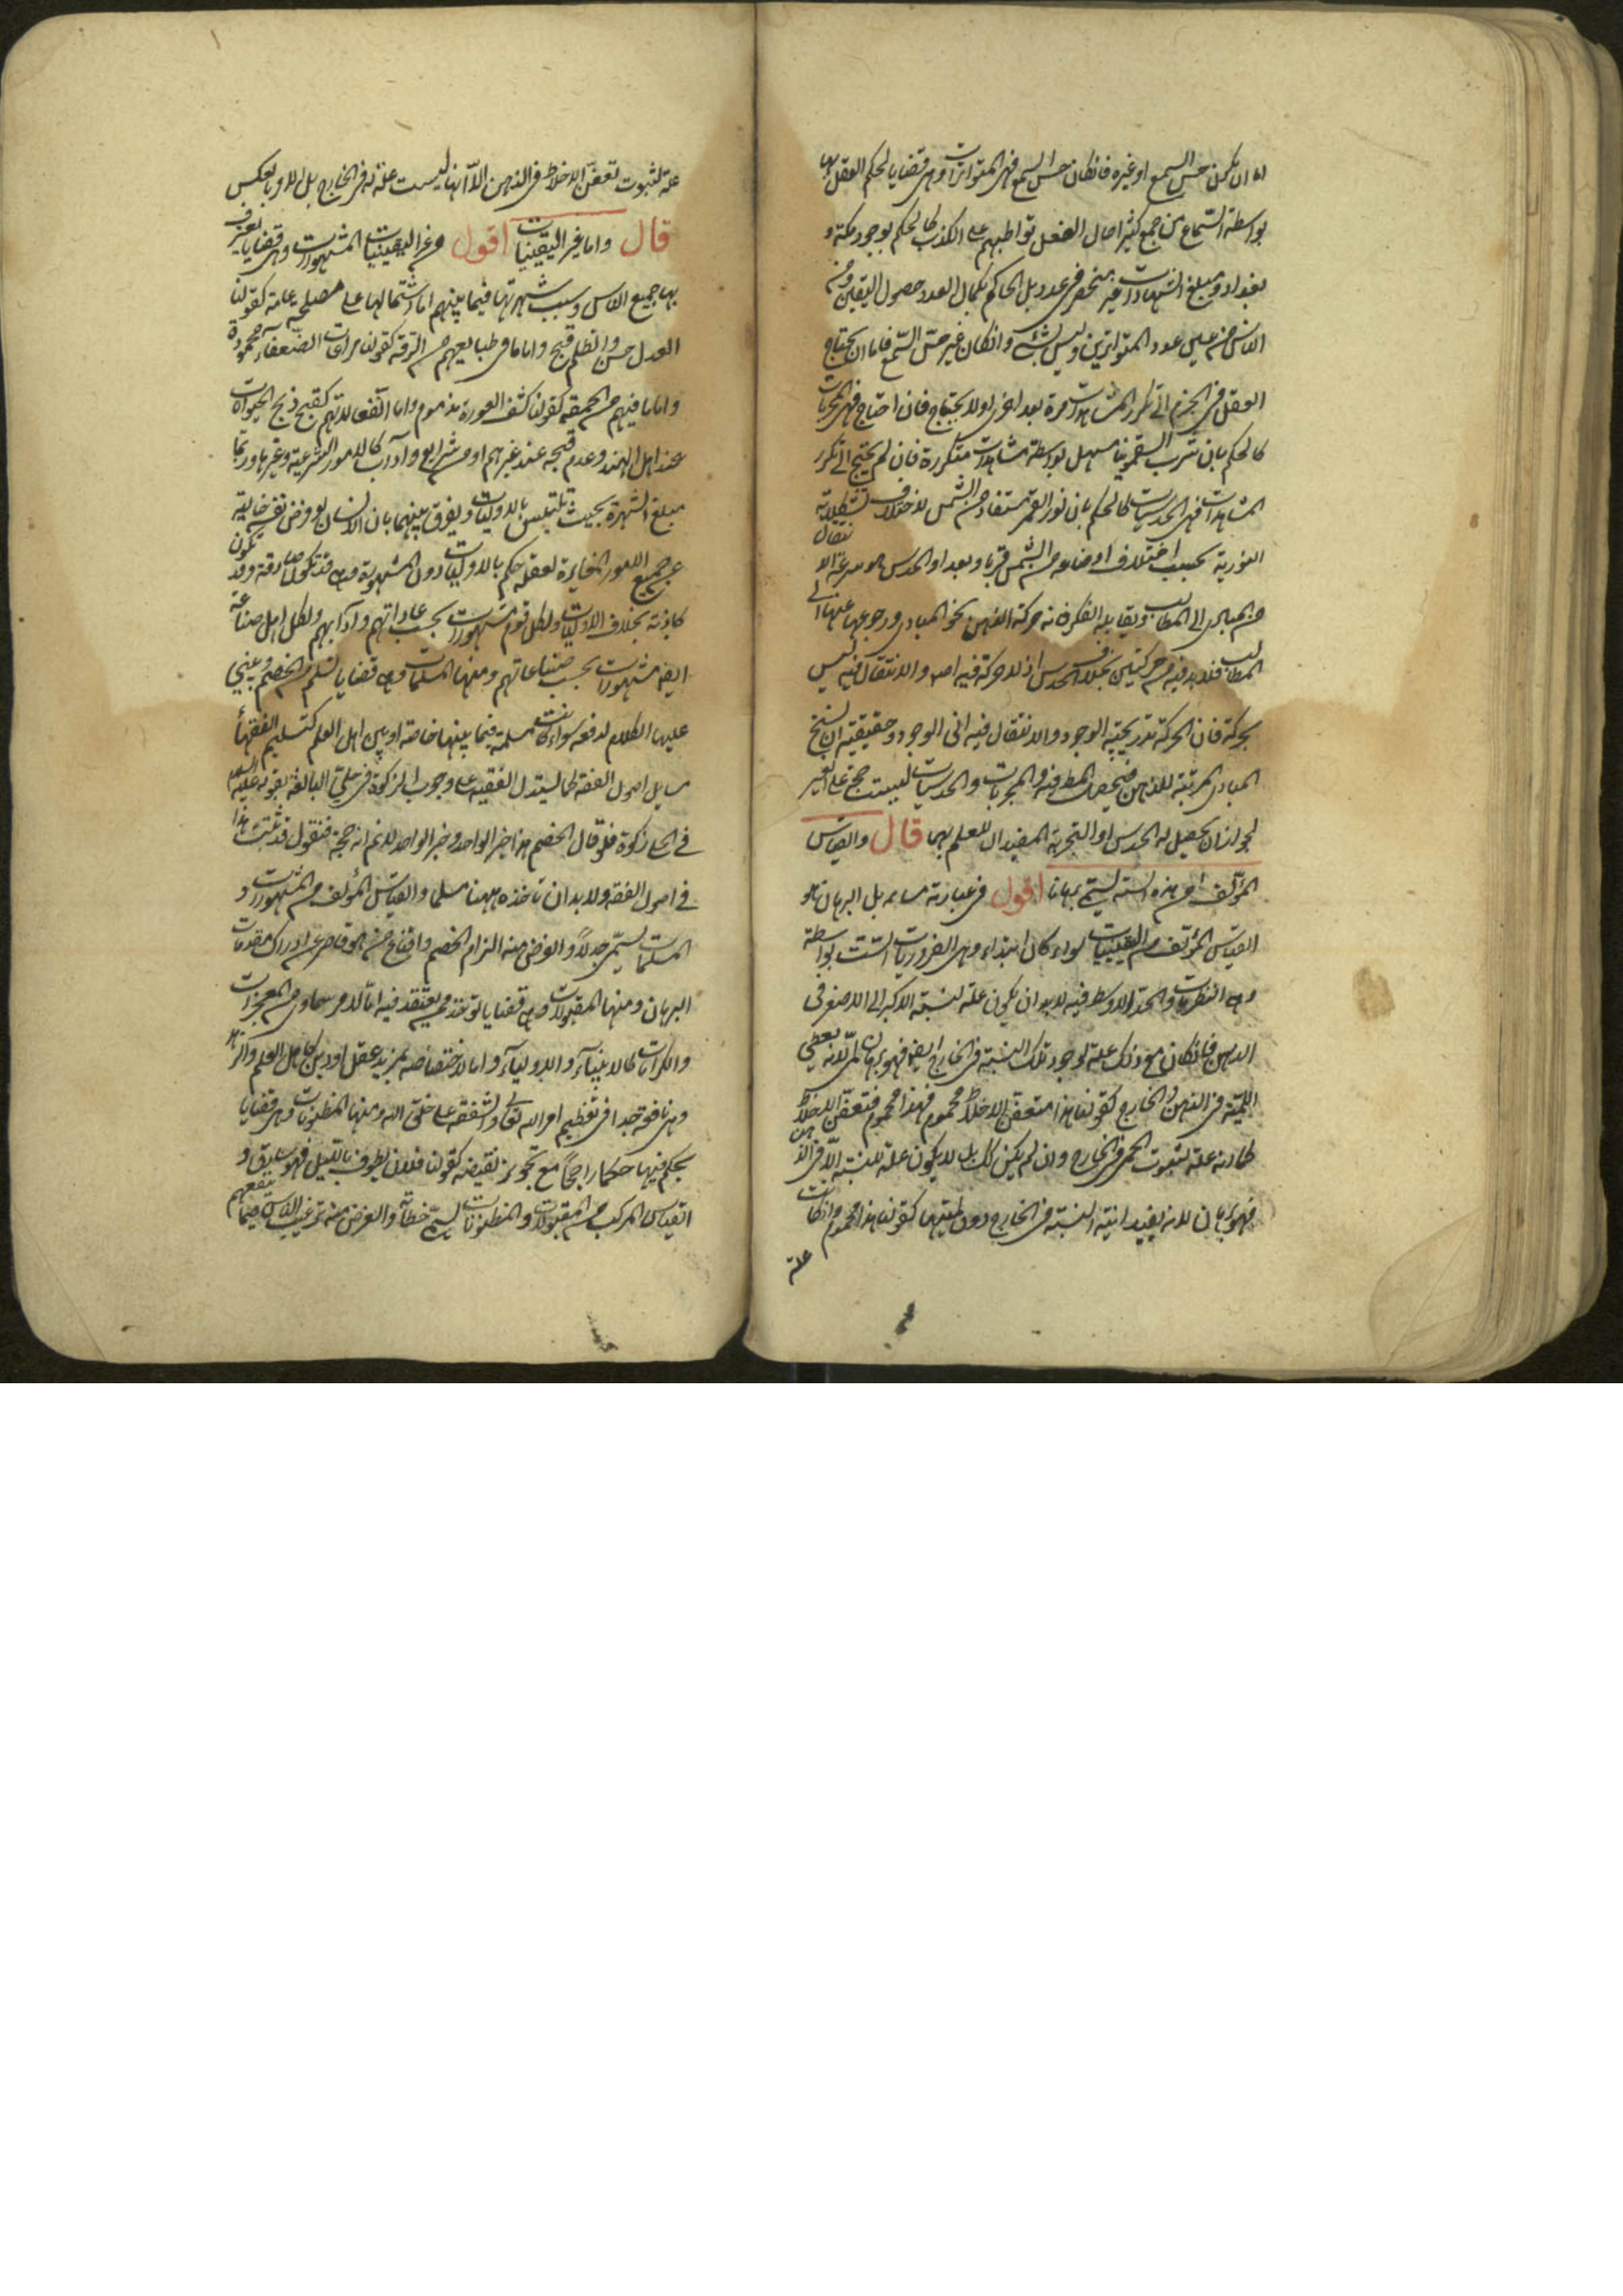 اما ان يكون حس السمع او غيره فان كان حس السمع فهي المتواترات وهي قضايا يحكم العقل بها
بواسطة السماع من جمع كثير احال العقل تواطئهم على الكذب كالحكم بوجود مكة و
بغداد ومبلغ الشهادات غير منحصر في عدد بل الحاكم بكمال العدد حصول اليقين ومن
الناس من عين عدد المتواترين وليس بشيء وان كان غير حس السمع فاما ان يحتاج
العقل في الجزم الى تكرر المشاهدات مرة بعد اخرى او لا يحتاج فان احتاج فهي المجربات
كالحكم بان شرب السقمونيا مسهل بواسطة مشاهدات متكررة فان لم يحتج الى تكرر
المشاهدات فهي الحدسيات كالحكم بان نور القمر مستفاد من الشمس لاختلاف تشكلاته
النورية بحسب اختلاف اوضاعه من الشمس قربا وبعدا والحدس هو سرعة الانتقال
من المبادى الى المطالب ويقابله الفكر فانه حركة الذهن نحو المبادى ورجوعها عنها الى
المطالب فلا بد فيه من حركتين بخلاف الحدس اذ لا حركة فيه اصلا والانتقال فيه ليس
بحركة فان الحركة تدريجية الوجود والانتقال فيه اني الوجود وحقيقته ان يسنح
المبادى المرتبة للذهن فيحصل المط فيه والمجربات والحدسيات ليست حجة على الغير
لجواز ان لا يحصل له الحدس او التجربة المفيدان للعلم بهما قال والقياس
المؤلف من هذه الستة يسمى برهانا اقول في عبارته مساهلة بل البرهان هو
القياس المؤلف من اليقينيات سواء كان ابتداء وهي الضروريات الست او بواسطة
وهي النظريات والحد الاوسط فيه لا بد ان يكون علة لنسبة الاكبر الى الاصغر في
الذهن فان كان مع ذلك علة لوجود تلك النسبة في الخارج ايضا فهو برهان لمي لانه يعطي
اللمية في الذهن والخارج كقولنا هذا متعفن الاخلاط محموم فهذا محموم فتعفن الاخلاط
كما انه علة لثبوت الحمى في الخارج وان لم يكن كذلك بل لا يكون علة للنسبة الا في الذهن
فهو برهان لانه يفيد انية النسبة في الخارج دون لميتها كقولنا هذا محموم وان كانت
علة
علة لثبوت تعفن الاخلاط في الذهن الا انها ليست علة له في الخارج بل الامر بالعكس
قال واما غير اليقينيات اقول من غير اليقينيات المشهورات وهي قضايا يعترف
بها جميع الناس وسبب شهرتها فيما بينهم اما اشتمالها على مصلحة عامة كقولنا
العدل حسن والظلم قبيح واما ما في طبايعهم من الرقة كقولنا مراعات الضعفاء محمودة
واما ما فيهم من الحمية كقولنا كشف العورة مذموم واما انفعالاتهم كقبح ذبح الحيوانات
عند اهل الهند وعدم قبحه عند غيرهم او من شرايع وآداب كالامور الشرعية وغيرها وربما
مبلغ الشهرة بحيث تلتبس بالاوليات ويفرق بينهما بان الانسان لو فرض نفسه خالية
عن جميع الامور المغايرة لعقله حكم بالاوليات دون المشهورة وهي قد تكون صادقة وقد تكون
كاذبة بخلاف الاوليات ولكل قوم مشهورات بحسب عاداتهم وآدابهم ولكل اهل صناعة
ايضا مشهورات بحسب صناعاتهم ومنها المسلمات وهي قضايا تسلم من الخصم ويبنى
عليها الكلام لدفعه سواء كانت مسلمة فيما بينهما خاصة او بين اهل العلم كتسليم الفقهاء
مسايل اصول الفقه كما يستدل الفقيه على وجوب الزكوة في حلي البالغة بقوله عليه السلام
في الحلي زكوة فلو قال الخصم هذا خبر الواحد وخبر الواحد لا نم انه حجة فنقول قد ثبت هذا
في اصول الفقه ولا بد ان تاخذه ههنا مسلما والقياس المؤلف من المشهورات و
المسلمات يسمى جدلا والغرض منه الزام الخصم واقناع من هو قاصر عن ادراك مقدمات
البرهان ومنها المقبولات وهي قضايا توخذ ممن يعتقد فيه اما لامر سماوي من المعجزات
والكرامات كالانبياء والاولياء واما لاختصاصه بمزيد عقل او دين كاهل العلم والزهد
وهي نافعة جدا في تعظيم امر الله تعالى والشفقة على خلق الله ومنها المظنونات وهي قضايا
يحكم فيها حكما راجحا مع تجويز نقيضه كقولنا فلان يطوف بالليل فهو سارق و
القياس المركب من المقبولات والمظنونات يسمى خطابة والغرض منه ترغيب الناس فيما ينفعهم